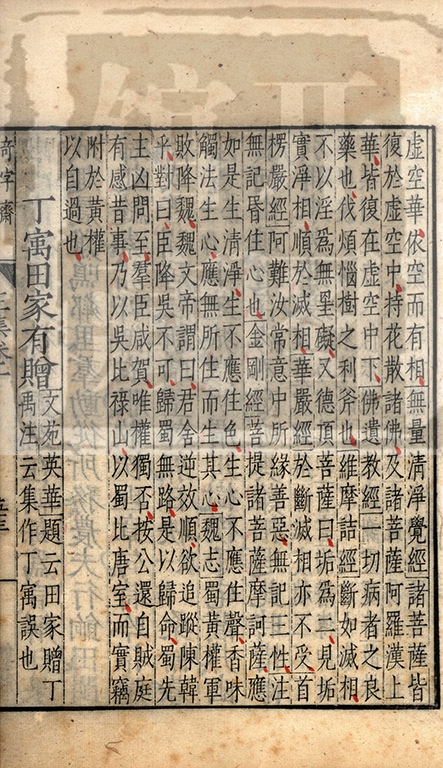 虛空華依空而有相無量清淨覺經諸菩薩皆
復於虛空中持花散諸佛及諸菩薩阿羅漢上
華皆復在虛空中下佛遺教經一切病者之良
藥也伐煩惱樹之利斧也維摩詰經斷如滅相
不以淫爲無罣礙又德頂菩薩曰垢爲二見垢
實淨相順於滅相華嚴經於斷滅相亦不受首
楞嚴經阿難汝常意中所緣善惡無記三性注
無記昏住心也金剛經菩提諸菩薩摩訶薩應
如是生清淨生不應住色生心不應住聲香味
觸法生心應無所住而生其心魏志蜀黃權軍
敗降魏魏文帝謂曰君舍逆效順欲追蹤陳韓
乎對曰臣降吳不可歸蜀無路是以歸命蜀先
主凶問至羣臣咸賀唯權獨否按公還自賊庭
有感昔事乃以吳比祿山以蜀比唐室而實竊
附於黃權
以自過也
丁寓田家有贈
文苑英華題云田家贈丁
禹注云集作丁寓誤也
奇字齋